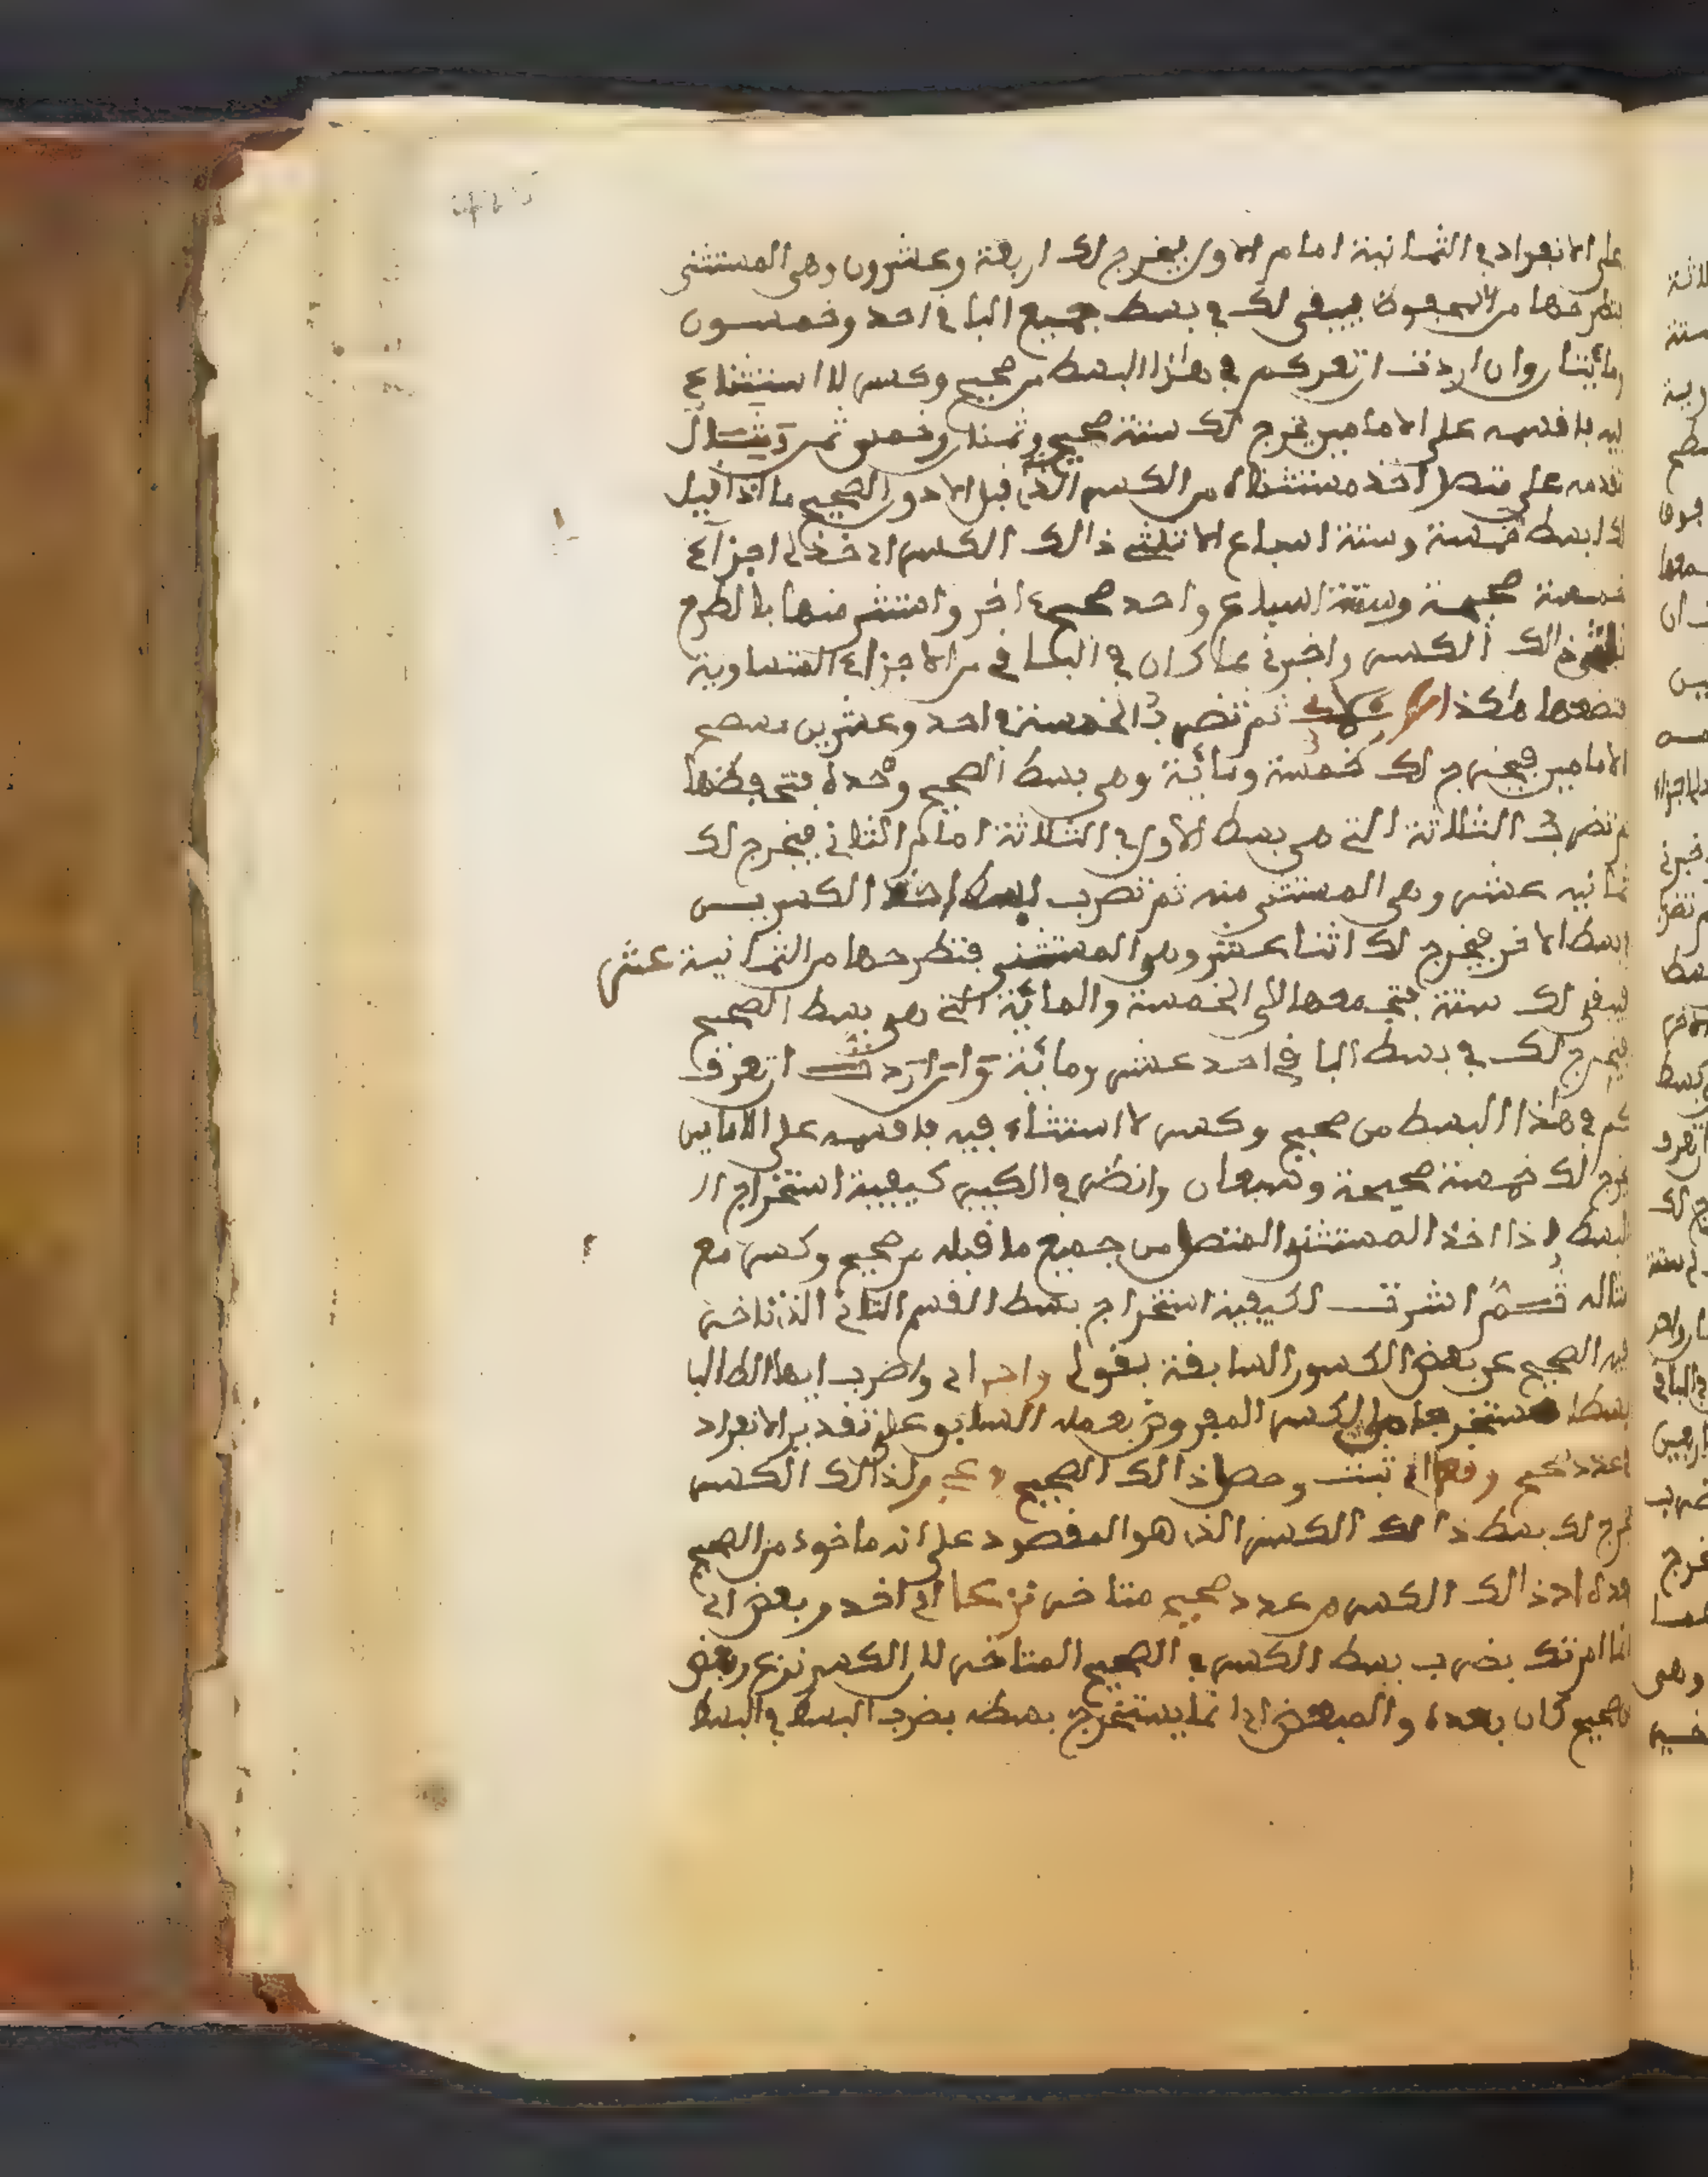 على الانفراد في الثمانية امام الاول يخرج لك اربعة وعشرون وهي المستثنى
فتطرحها من المحفوظ فيبقى لك في بسط جميع الباقي احد وخمسون
ومائتان وان اردت ان تعرف كم في هذا البسط من صحيح وكسر لا استثناء
فيه فاقسمه على الامامين يخرج لك ستة صحيح وثمنان وخمس ثمن ومثال
تقدمه على متصل اخذ مستثناه من الكسر الذي قبل الادو الصحيح ما اذا قيل
لك ابسط خمسة وستة اسباع الا ثلثي ذالك الكسر اي خذ لي اجزاء
خمسة صحيحة وستة اسباع واحد صحيح اخر واستثن منها بالطرح
ثلثي ذالك الكسر واخبرني بما كان في الباقي من الاجزاء المتساوية
فتضعها هكذا ثم تضرب الخمسة في احد وعشرين مسطح
الامامين فيخرج لك خمسة ومائة وهي بسط الصحيح وحده فتحفظها
ثم تضرب الستة التي هي بسط الاول في الثلاثة امام الثاني فيخرج لك
ثمانية عشر وهي المستثنى منه ثم تضرب بسط احد الكسرين
في بسط الاخر فيخرج لك اثنا عشر وهو المستثنى فتطرحها من الثمانية عشر
فيبقى لك ستة فتجمعها الى الخمسة والمائة التي هي بسط الصحيح
فيخرج لك في بسط الباقي احد عشر ومائة وان اردت ان تعرف
كم في هذا البسط من صحيح وكسر لا استثناء فيه فاقسمه على الامامين
يخرج لك خمسة صحيحة وسبعان وانظر في الكبير كيفية استخراج ال
البسط اذا اخذ المستثنى المتصل من جميع ما قبله من صحيح وكسر مع
مثاله ثم اشرت لكيفية استخراج بسط القسم الثاني الذي تاخر
فيه الصحيح عن بعض الكسور السابقة بقولي واضرب اي واضرب ايها الطالب
بسطا مستخرجا من الكسر المفروض بعمله السابق على تقدير الانفراد
في عدد صحيح وقع اي ثبت وحصل ذالك الصحيح ولذالك الكسر
يخرج لك بسط ذالك الكسر الذي هو المقصود على انه ماخوذ من الصحيح
بعده اذ ذالك الكسر من عدد صحيح متاخر نزعا اي اخذ وبعض اي
انما امرتك بضرب بسط الكسر في الصحيح المتاخر لان الكسر نزع وبعض
من صحيح كان بعده والمبعض انما يستخرج بسطه بضرب البسط في البسط